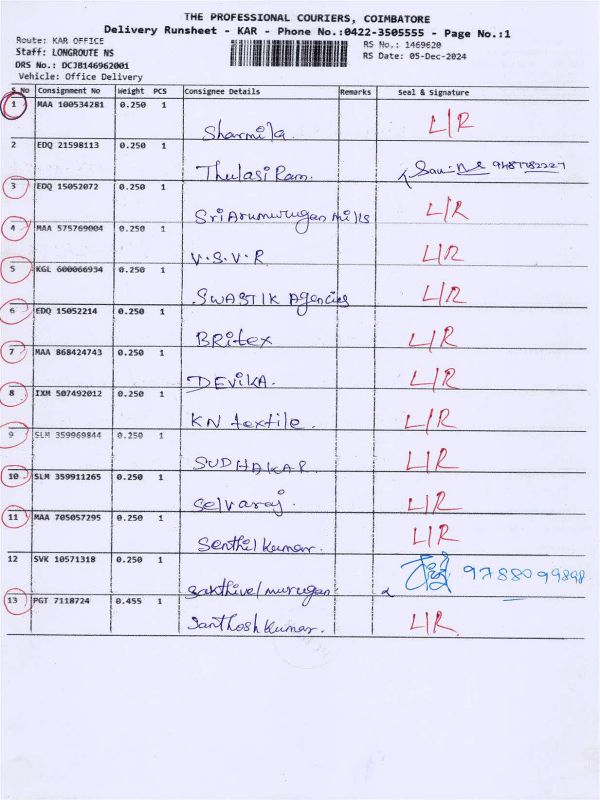 THE PROFESSIONAL COURIERS, COIMBATORE
Delivery Runsheet - KAR - Phone No.:0422-3505555 - Page No.:1
Route: KAR OFFICE
RS No.: 1469620
Staff: LONGROUTE NS
RS Date: 05-Dec-2024
DRS No.: DCJB146962001
Vehicle: Office Delivery
S.No Consignment No Weight PCS Consignee Details Remarks Seal & Signature
1 MAA 100534281 0.250 1 Sharmila. L/R
2 EDQ 21598113 0.250 1 ThulasiRam.
3 EDQ 15052072 0.250 1 Sri Arumurugan mills L/R
4 MAA 575769004 0.250 1 V.S.V.R L/R
5 KGL 600066934 0.250 1 SWASTIK Agencies L/R
6 EDQ 15052214 0.250 1 BRitex L/R
7 MAA 868424743 0.250 1 DEViKA. L/R
8 IXM 507492012 0.250 1 KN textile. L/R
9 SLM 359969844 0.250 1 SUDHAKAR. L/R
10 SLM 359911265 0.250 1 Selvaraj. L/R
11 MAA 705057295 0.250 1 Senthil kumar. L/R
12 SVK 10571318 0.250 1 Sakthivel murugan 9788099898
13 PGT 7118724 0.455 1 Santhosh kumar. L/R